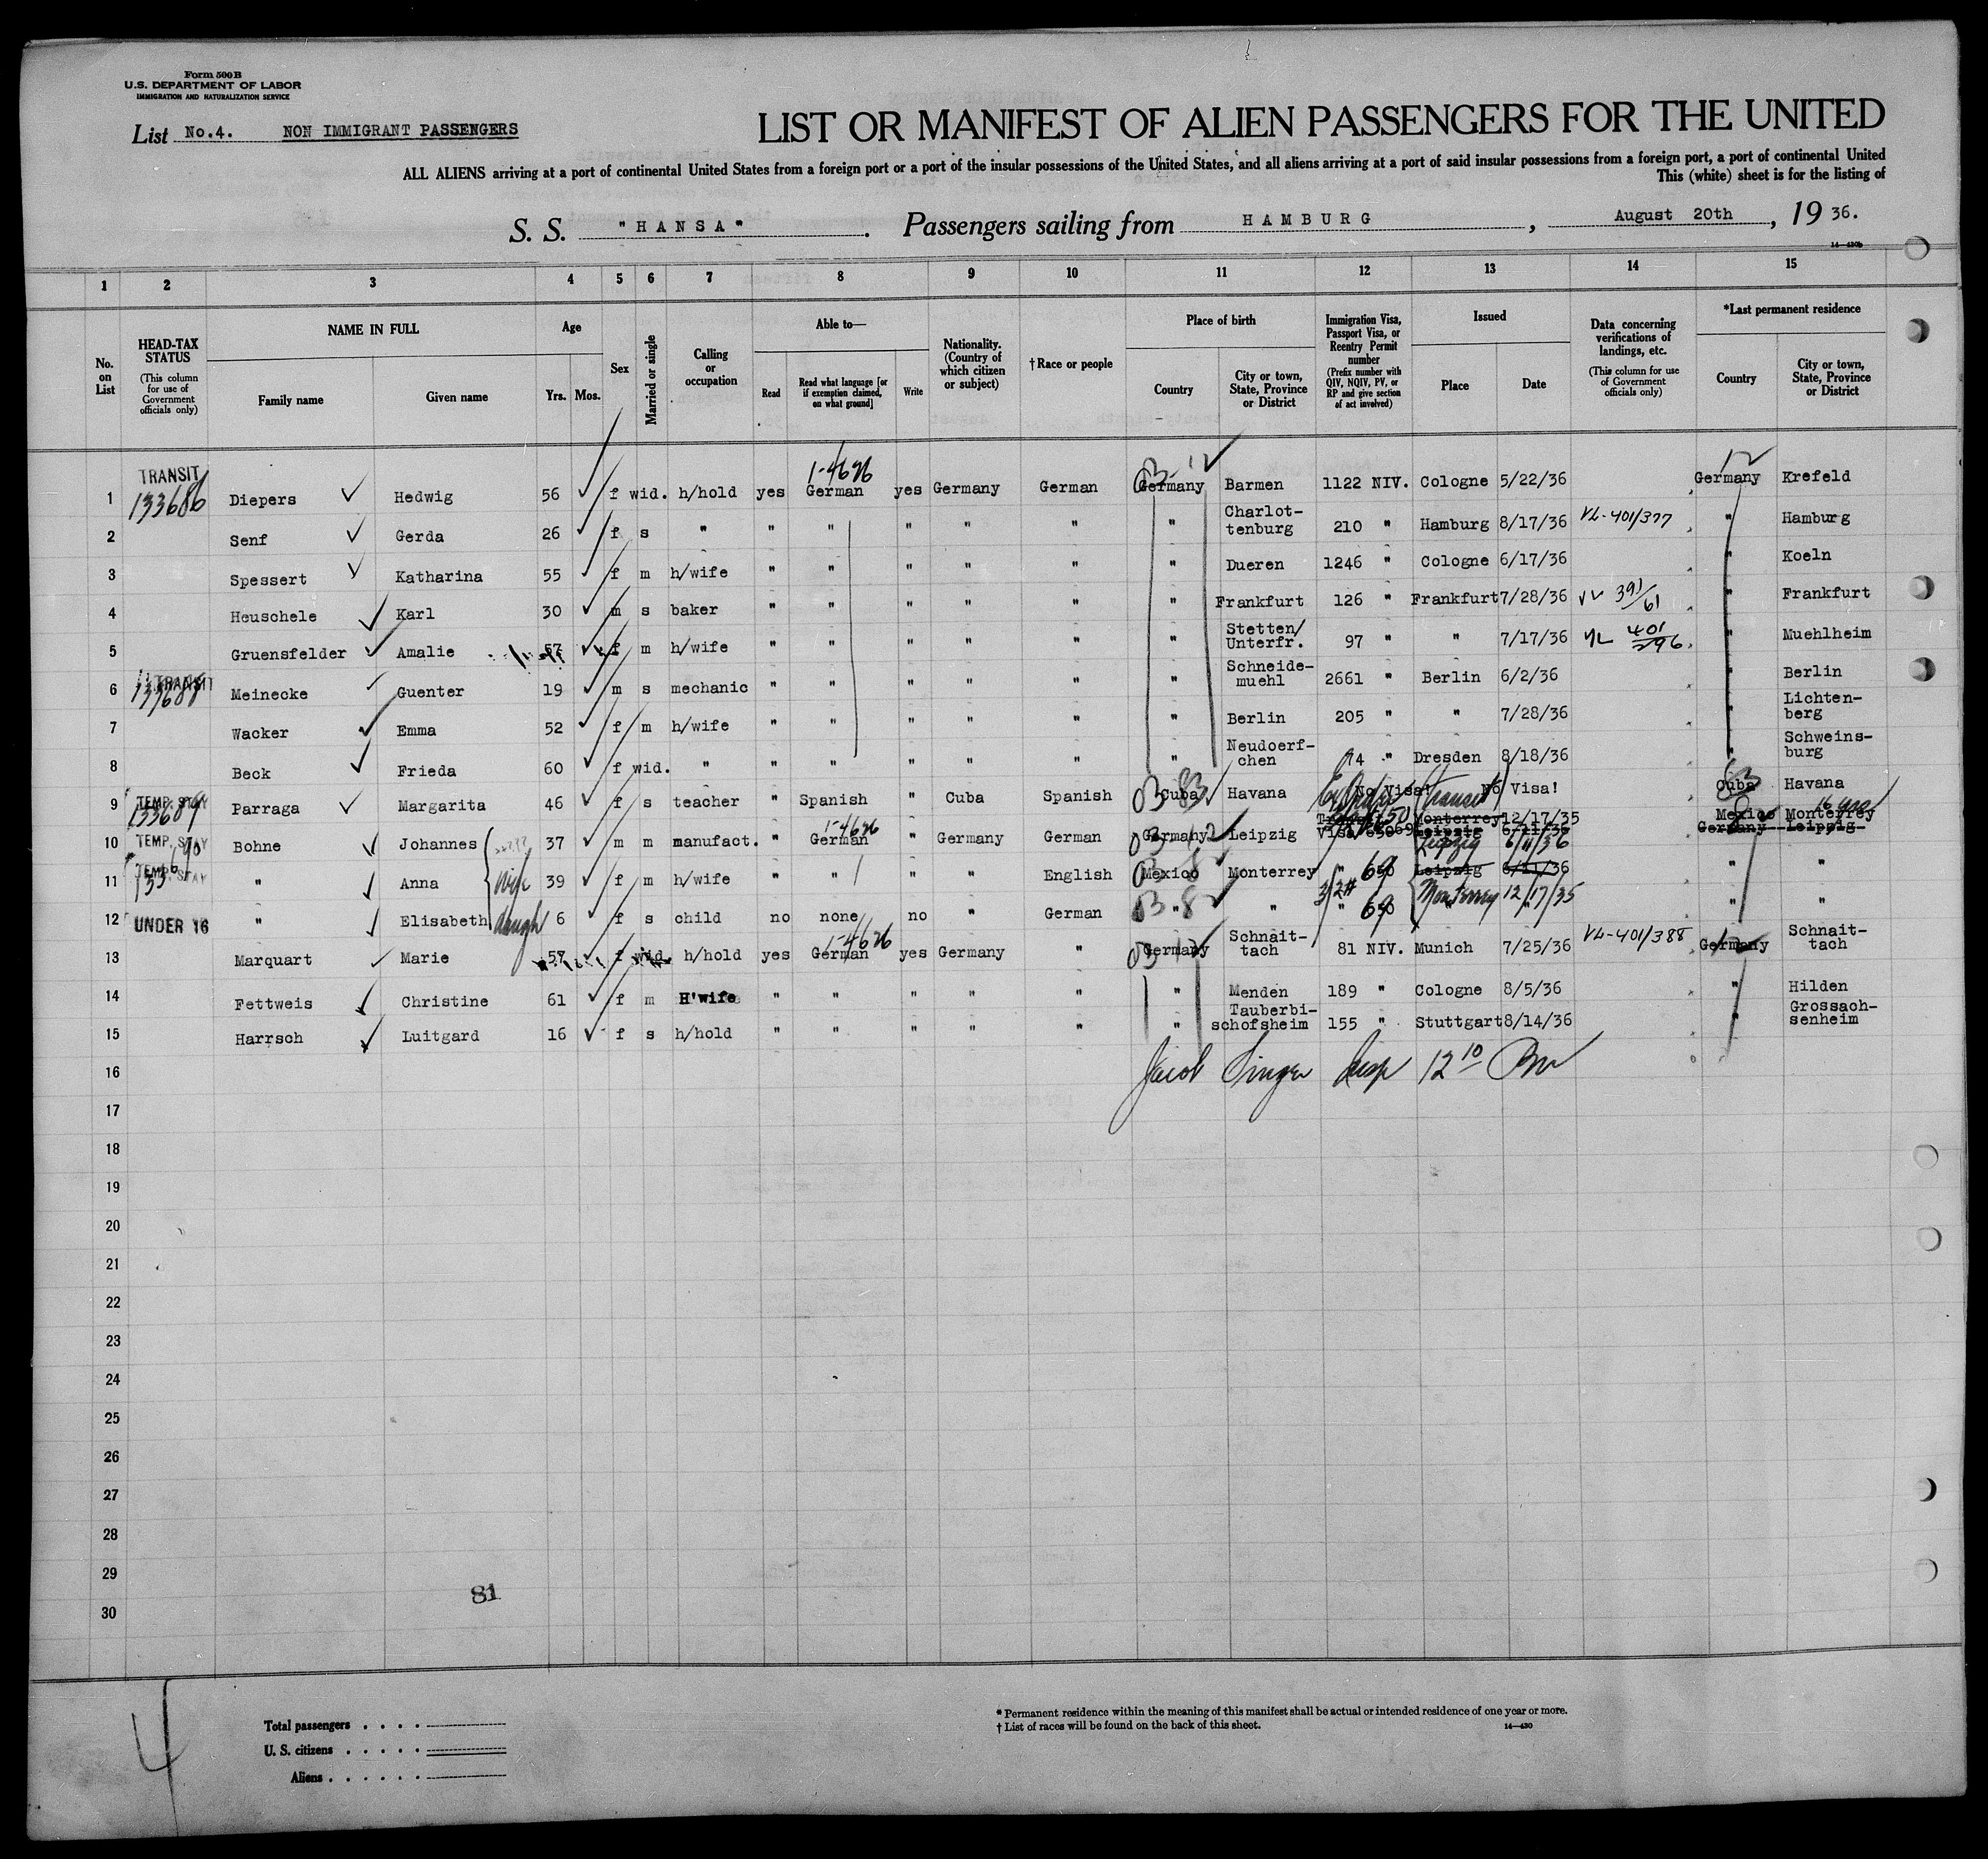 Form 500 B
U.S. DEPARTMENT OF LABOR
IMMIGRATION AND NATURALIZATION SERVICE
List No.4. NON IMMIGRANT PASSENGERS
LIST OR MANIFEST OF ALIEN PASSENGERS FOR THE UNITED
ALL ALIENS arriving at a port of continental United States from a foreign port or a port of the insular possessions of the United States, and all aliens arriving at a port of said insular possessions from a foreign port, a port of continental United
This (white) sheet is for the listing of
S. S. "HANSA". Passengers sailing from HAMBURG, August 20th, 19 36.
14—430b
1 2 3 4 5 6 7 8 9 10 11 12 13 14 15
No. on List
HEAD-TAX STATUS (This column for use of Government officials only)
NAME IN FULL
Family name
Given name
Age
Yrs. Mos.
Sex
Married or single
Calling or occupation
Able to—
Read
Read what language [or if exemption claimed, on what ground]
Write
Nationality. (Country of which citizen or subject)
†Race or people
Place of birth
Country
City or town, State, Province or District
Immigration Visa, Passport Visa, or Reentry Permit number (Prefix number with QIV, NQIV, PV, or RP and give section of act involved)
Issued
Place
Date
Data concerning verifications of landings, etc. (This column for use of Government officials only)
*Last permanent residence
Country
City or town, State, Province or District
1 TRANSIT 133686 Diepers Hedwig 56 f wid. h/hold yes German 1-4626 yes Germany German Germany Barmen 1122 NIV. Cologne 5/22/36 Germany Krefeld
2 Senf Gerda 26 f s " " " " " " " Charlottenburg 210 " Hamburg 8/17/36 VL-401/377 " Hamburg
3 Spessert Katharina 55 f m h/wife " " " " " " Dueren 1246 " Cologne 6/17/36 " Koeln
4 Heuschele Karl 30 m s baker " " " " " " Frankfurt 126 " Frankfurt 7/28/36 391/61 " Frankfurt
5 Gruensfelder Amalie 57 f m h/wife " " " " " " Stetten/Unterfr. 97 " " 7/17/36 401/296 " Muehlheim
6 TRANSIT 133688 Meinecke Guenter 19 m s mechanic " " " " " " Schneidemuehl 2661 " Berlin 6/2/36 " Berlin
7 Wacker Emma 52 f m h/wife " " " " " " Berlin 205 " " 7/28/36 " Lichtenberg
8 Beck Frieda 60 f wid. " " " " " " " Neudoerfchen 74 " Dresden 8/18/36 " Schweinsburg
9 TEMP. STAY 133689 Parraga Margarita 46 f s teacher " Spanish " Cuba Spanish Cuba Havana No Visa! Transit No Visa! Cuba Havana
10 TEMP. STAY 690 Bohne Johannes 37 m m manufact. " German 1-4626 " Germany German Germany Leipzig Monterrey 12/17/35 Leipzig 6/11/36 Leipzig 6/11/36 Mexico Monterrey Germany Leipzig
11 TEMP. STAY " Anna wife 39 f m h/wife " " " " English Mexico Monterrey " 690 Leipzig 6/11/36 " "
12 UNDER 16 " Elisabeth daugh 6 f s child no none no " German " " " 690 Monterrey 12/17/35 " "
13 Marquart Marie 57 f wid. h/hold yes German 1-4626 yes Germany " Germany Schnaittach 81 NIV. Munich 7/25/36 VL-401/388 Germany Schnaittach
14 Fettweis Christine 61 f m H'wife " " " " " " Menden 189 " Cologne 8/5/36 " Hilden
15 Harrsch Luitgard 16 f s h/hold " " " " " " Tauberbischofsheim 155 " Stuttgart 8/14/36 " Grossachsenheim
16 Jacob Singer Insp 12 10
17
18
19
20
21
22
23
24
25
26
27
28
29
30
81
4
Total passengers
U. S. citizens
Aliens
* Permanent residence within the meaning of this manifest shall be actual or intended residence of one year or more.
† List of races will be found on the back of this sheet.
14—430